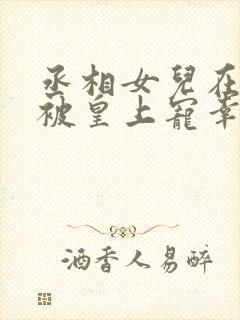 丞相女兒在
被皇上寵幸
酒香人易醉